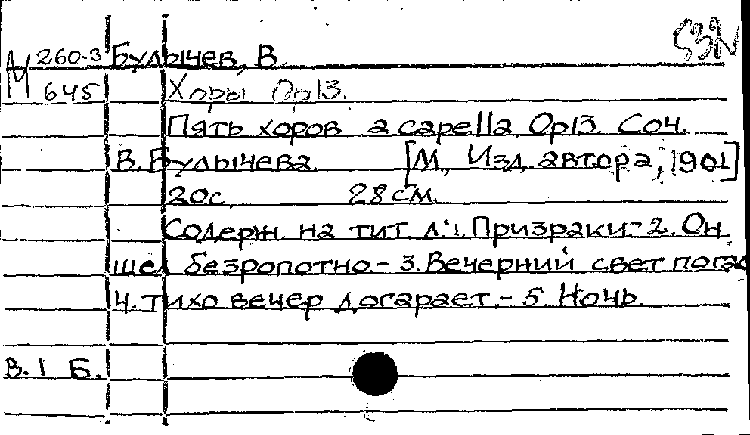 М 260-3 Булычев, В.
645 Хоры Op13.
Пять хоров a capella Op13 Соч.
В. Булычева. [М., Изд. автора, 1901]
20с. 28см.
Содерж. на тит. л.: 1. Призраки.- 2. Он
шел безропотно.- 3. Вечерний свет погас
4. Тихо вечер догарает.- 5. Ночь.
В. 1 Б.